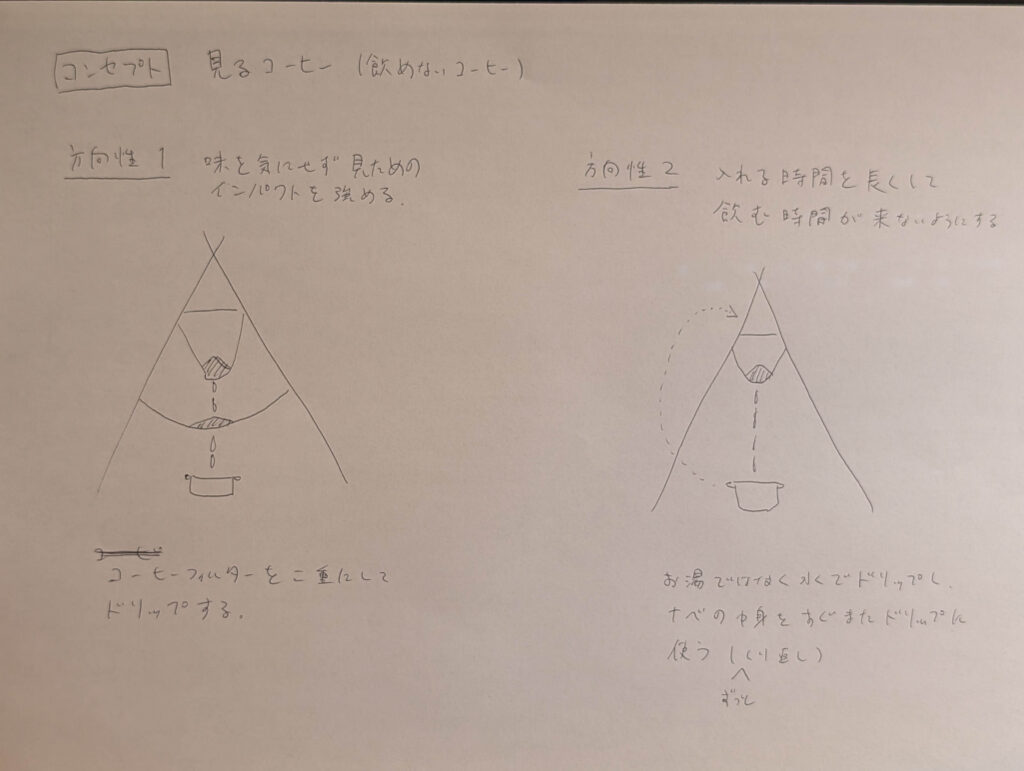 コンセプト 見るコーヒー (飲めないコーヒー)
方向性 1 味を気にせず 見ための
インパクトを 強める.
コーヒーフィルターを 二重にして
ドリップする.
方向性 2 入れる時間を 長くして
飲む 時間が 来ないようにする
お湯ではなく 水でドリップし,
ナベの中身を すぐまたドリップに
使う (くり返し)
ずっと